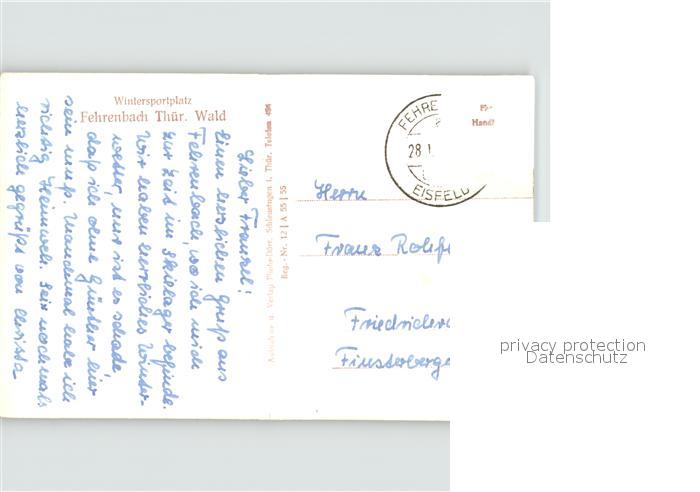 Wintersportplatz
Fehrenbach Thür. Wald
Lieber Franzel!
Einen herzlichen Gruß aus
Fehrenbach, wo ich mich
zur Zeit im Skilager befinde.
Wir haben herrliches Winter-
wetter, nur ist es schade,
daß ich ohne Günther hier
sein muß. Manchmal habe ich
richtig Heimweh. Sei nochmals
herzlich gegrüßt von
Reg.-Nr. 12 | A 55 | 55
FEHRE
28.1
EISFELD
Handl
Herrn
Franz
Friedrichro
Finsterberge
privacy protection
Datenschutz